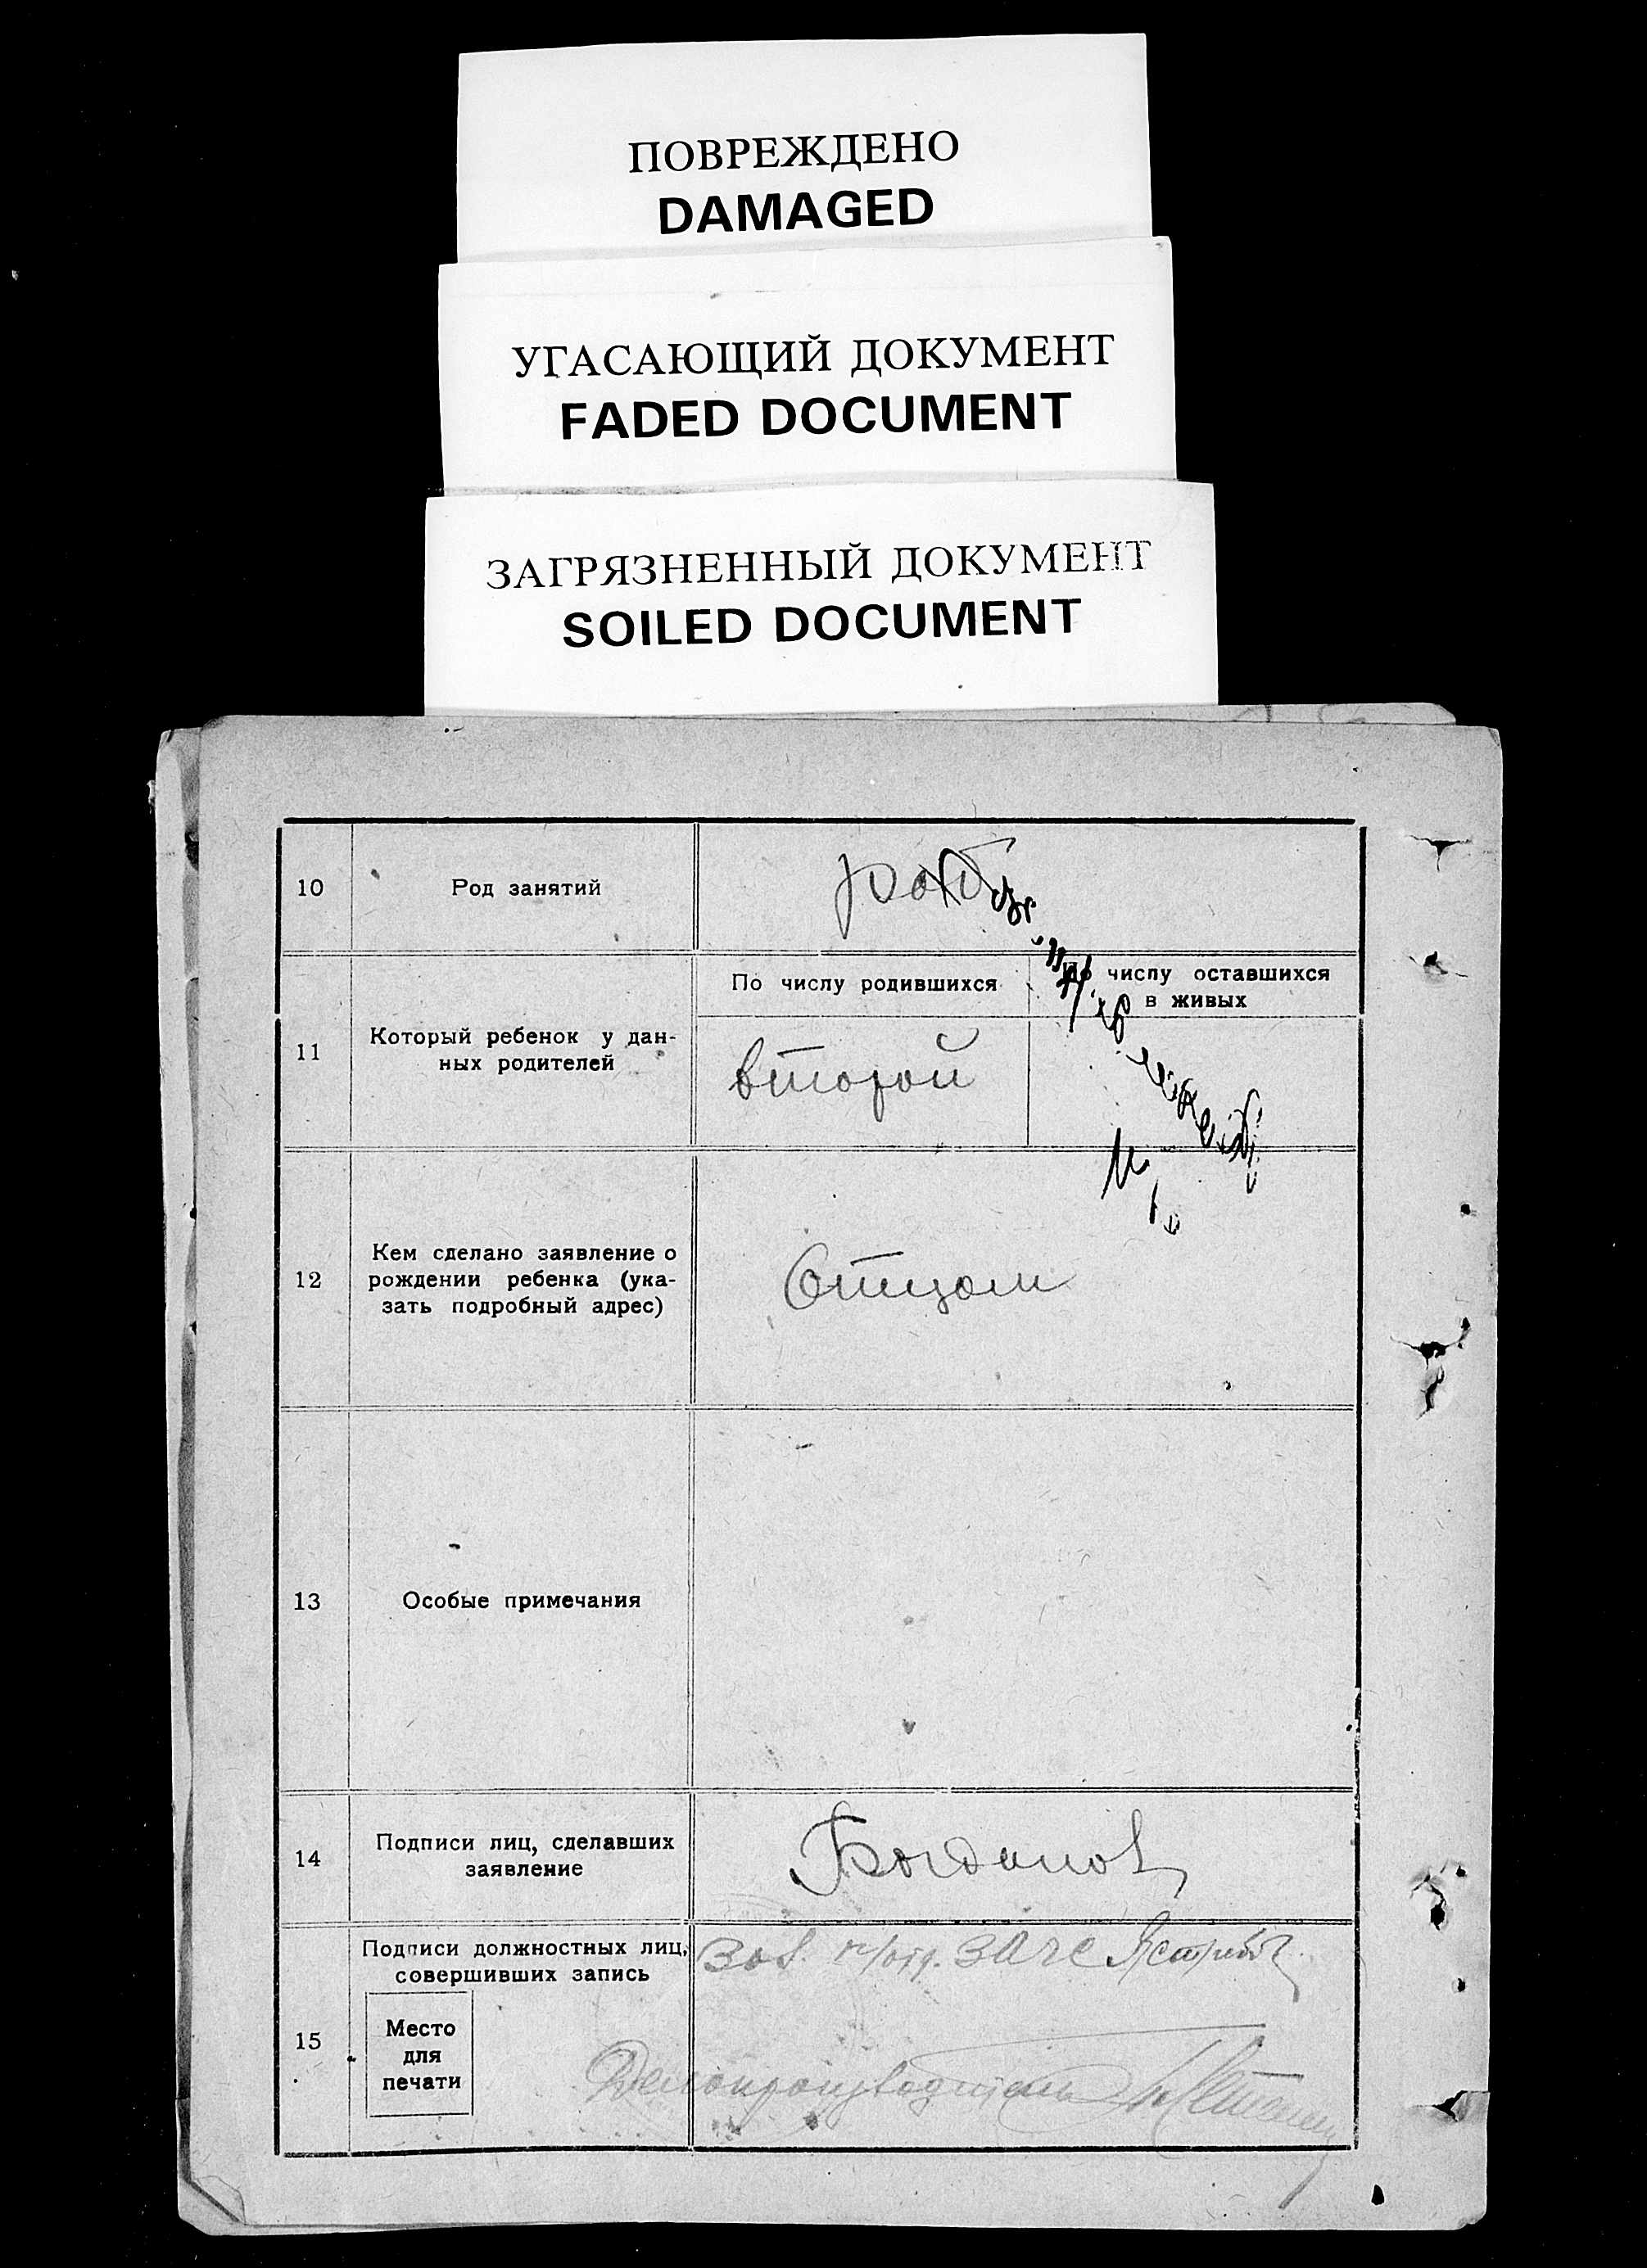 ПОВРЕЖДЕНО
DAMAGED
УГАСАЮЩИЙ ДОКУМЕНТ
FADED DOCUMENT
ЗАГРЯЗНЕННЫЙ ДОКУМЕНТ
SOILED DOCUMENT
10
Род занятий
11
Который ребенок у дан-
ных родителей
По числу родившихся
По числу оставшихся
в живых
второй
12
Кем сделано заявление о
рождении ребенка (ука-
зать подробный адрес)
Отцом
13
Особые примечания
14
Подписи лиц, сделавших
заявление
Богданов
15
Подписи должностных лиц,
совершивших запись
Место
для
печати
Зав. п/отд. ЗАГС
Делопроизводитель